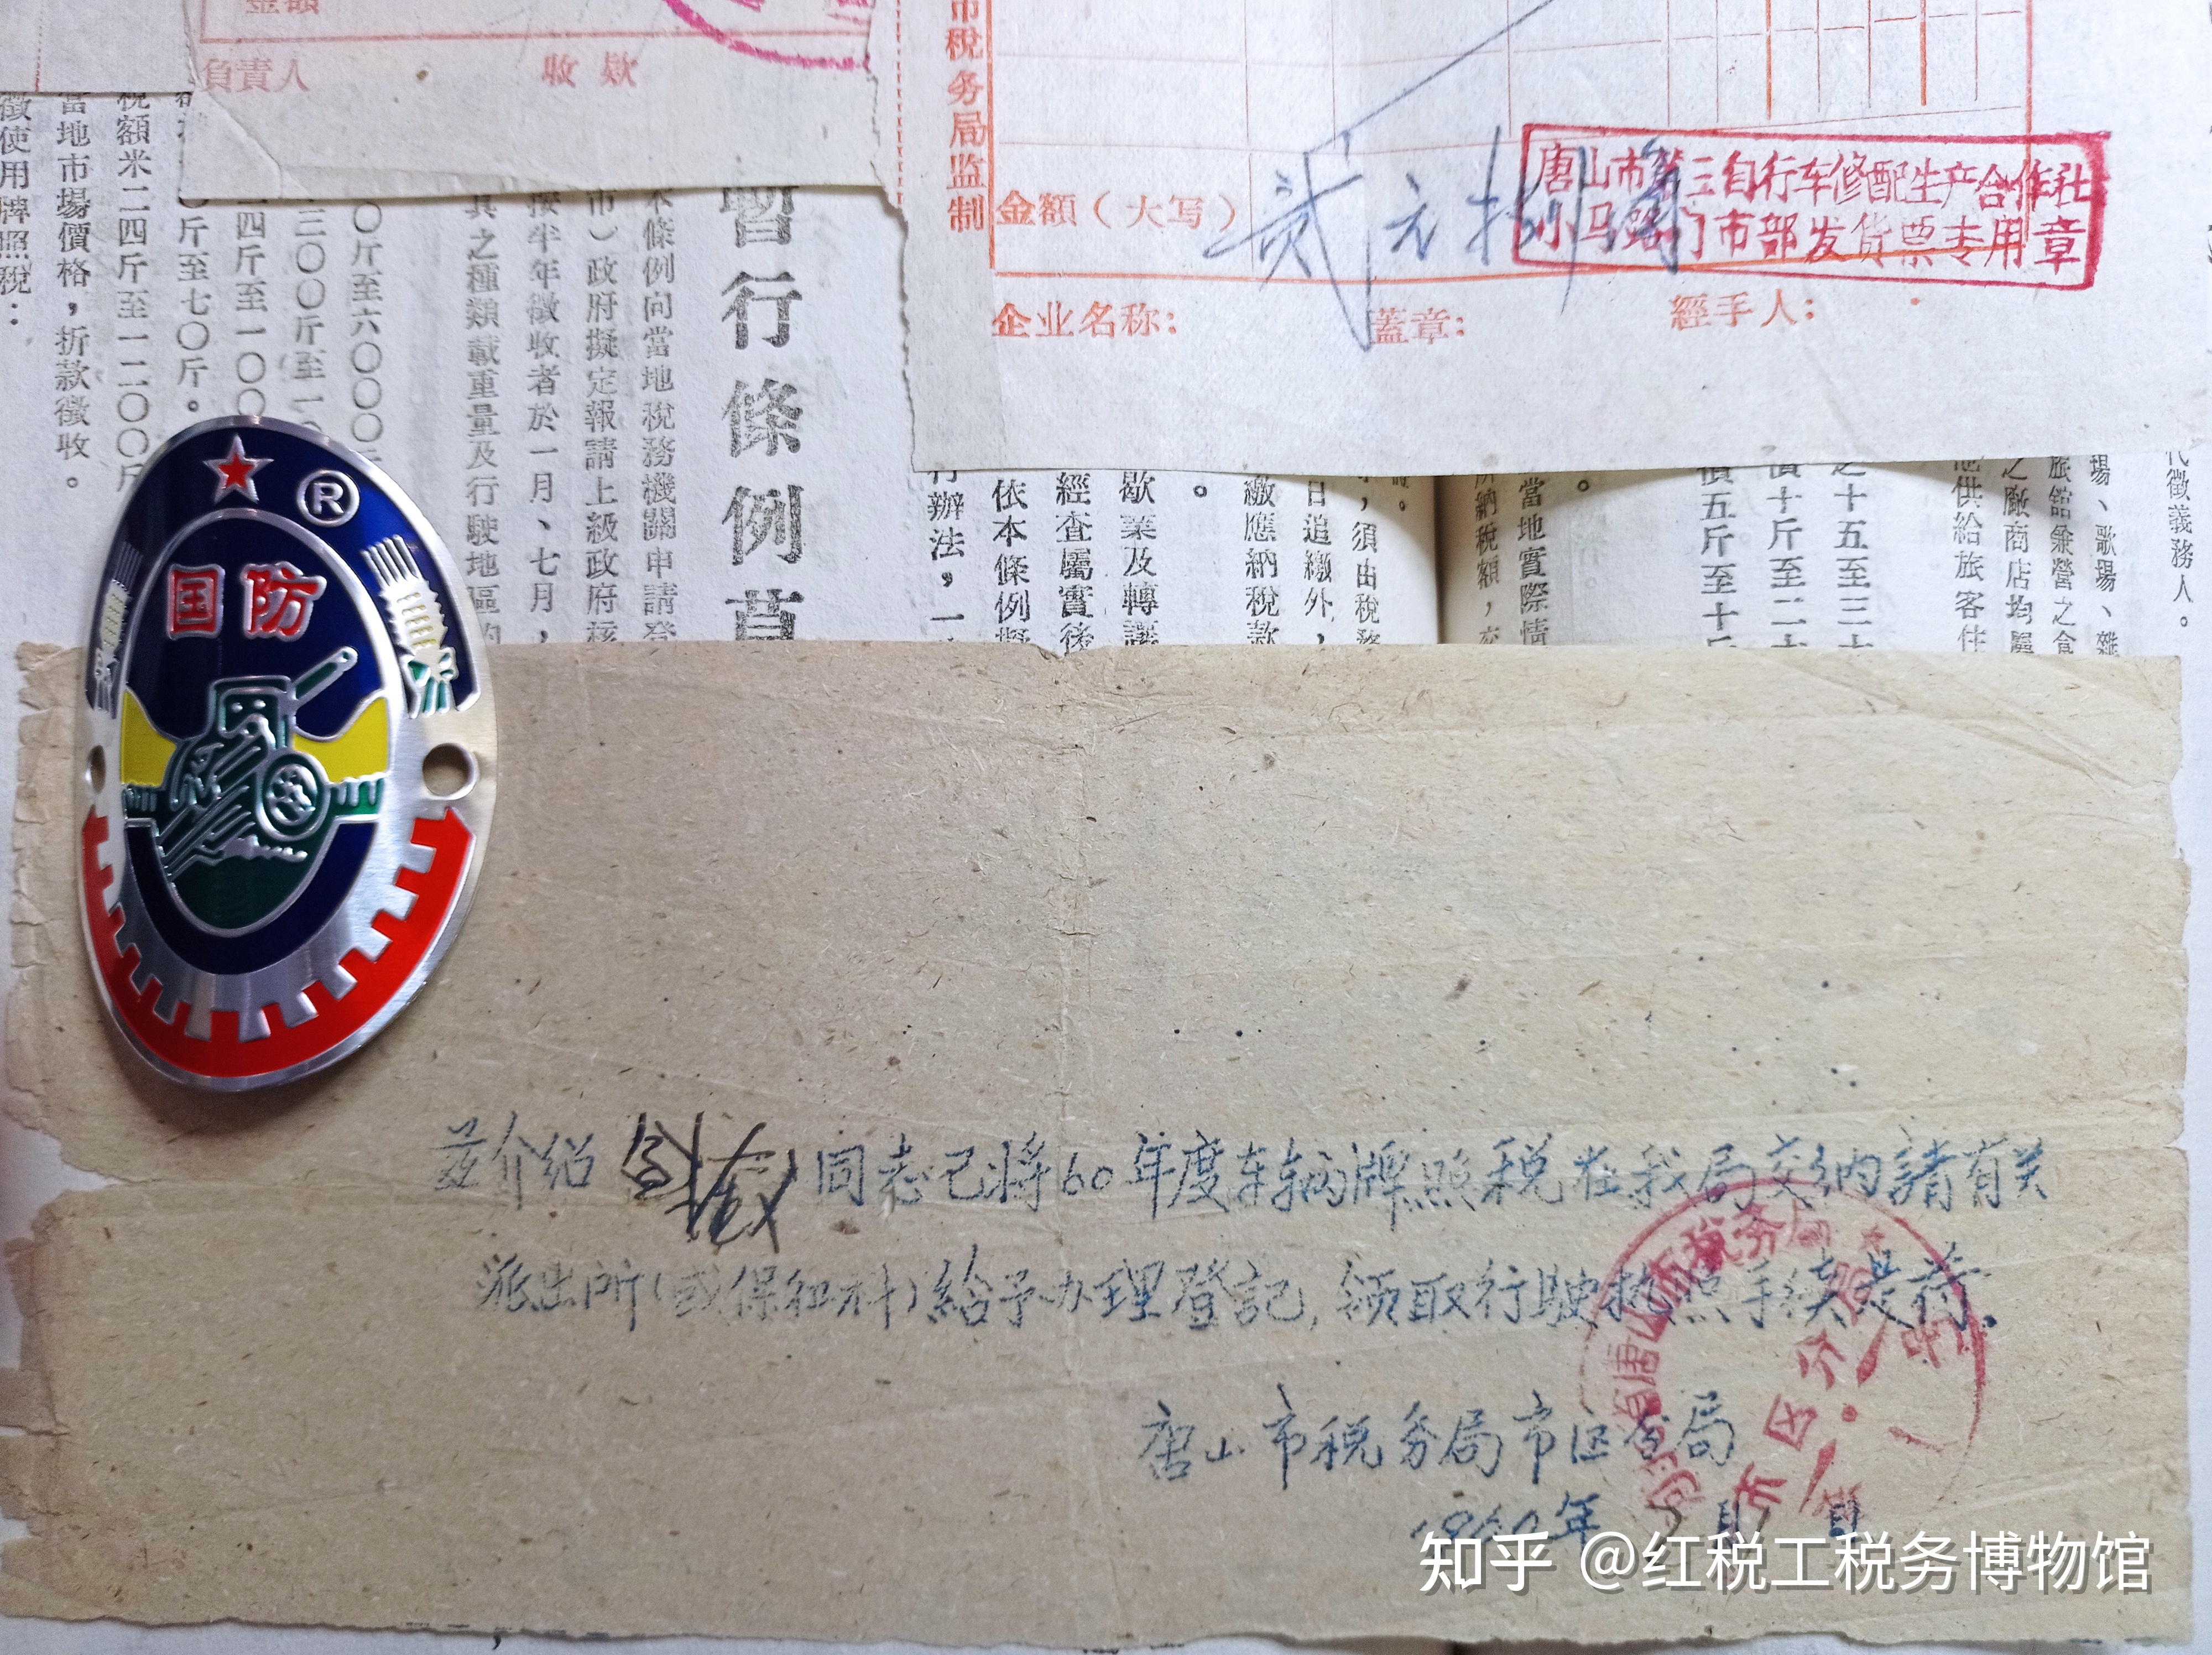 金額
負責人 收款
市税务局监制
金額（大写） 贰元捌角
唐山市第三自行车修配生产合作社
小马路门市部发货票专用章
企业名称： 蓋章： 經手人：
代徵義務人。
場、歌場、雜
旅館兼營之食
之廠商店均屬
他供給旅客住
之十五至三十
價十斤至二十
價五斤至十斤
。
當地實際情
所納稅額，交
，須由稅務
日追繳外，
繳應納稅款
。
歇業及轉讓
經查屬實後
依本條例擬
行辦法，一
暫行條例草
本條例向當地稅務機關申請登
市）政府擬定報請上級政府核
按半年徵收者於一月、七月，
具之種類載重量及行駛地區的
〇斤至六〇〇〇斤
三〇〇斤至一〇
四斤至一〇〇
〇斤至七〇斤。
稅額米二四斤至一二〇〇斤
當地市場價格，折款徵收。
徵使用牌照稅：
®
国防
茲介绍 同志已将60年度车辆牌照税在我局交纳請有关
派出所（或保卫科）給予办理登記，领取行驶执照手续是荷。
唐山市税务局市区分局
1960年5月 日
省唐山市税务局
市区分局
知乎 @红税工税务博物馆